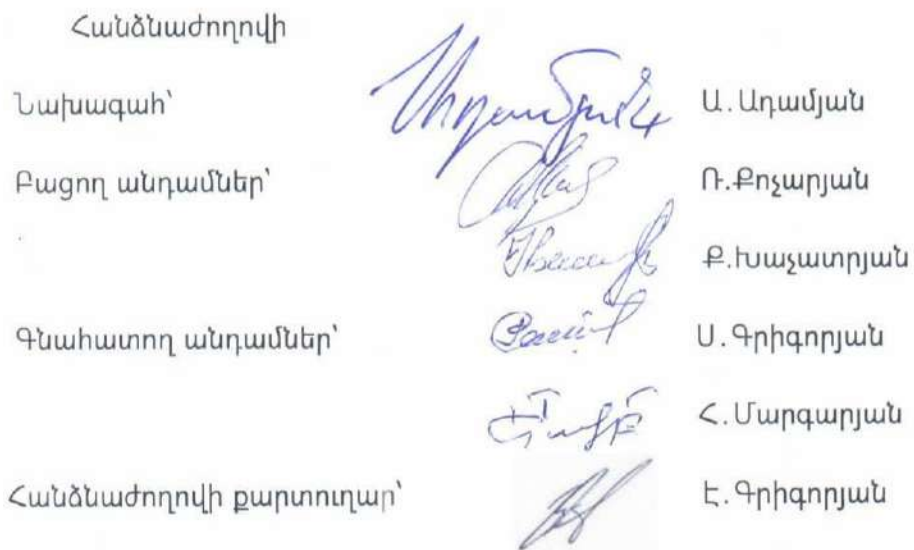 Հանձնաժողովի
Նախագահ՝ Ա.Ադամյան
Բացող անդամներ՝ Ռ.Քոչարյան
Ք.Խաչատրյան
Գնահատող անդամներ՝ Ս.Գրիգորյան
Հ.Մարգարյան
Հանձնաժողովի քարտուղար՝ Է.Գրիգորյան